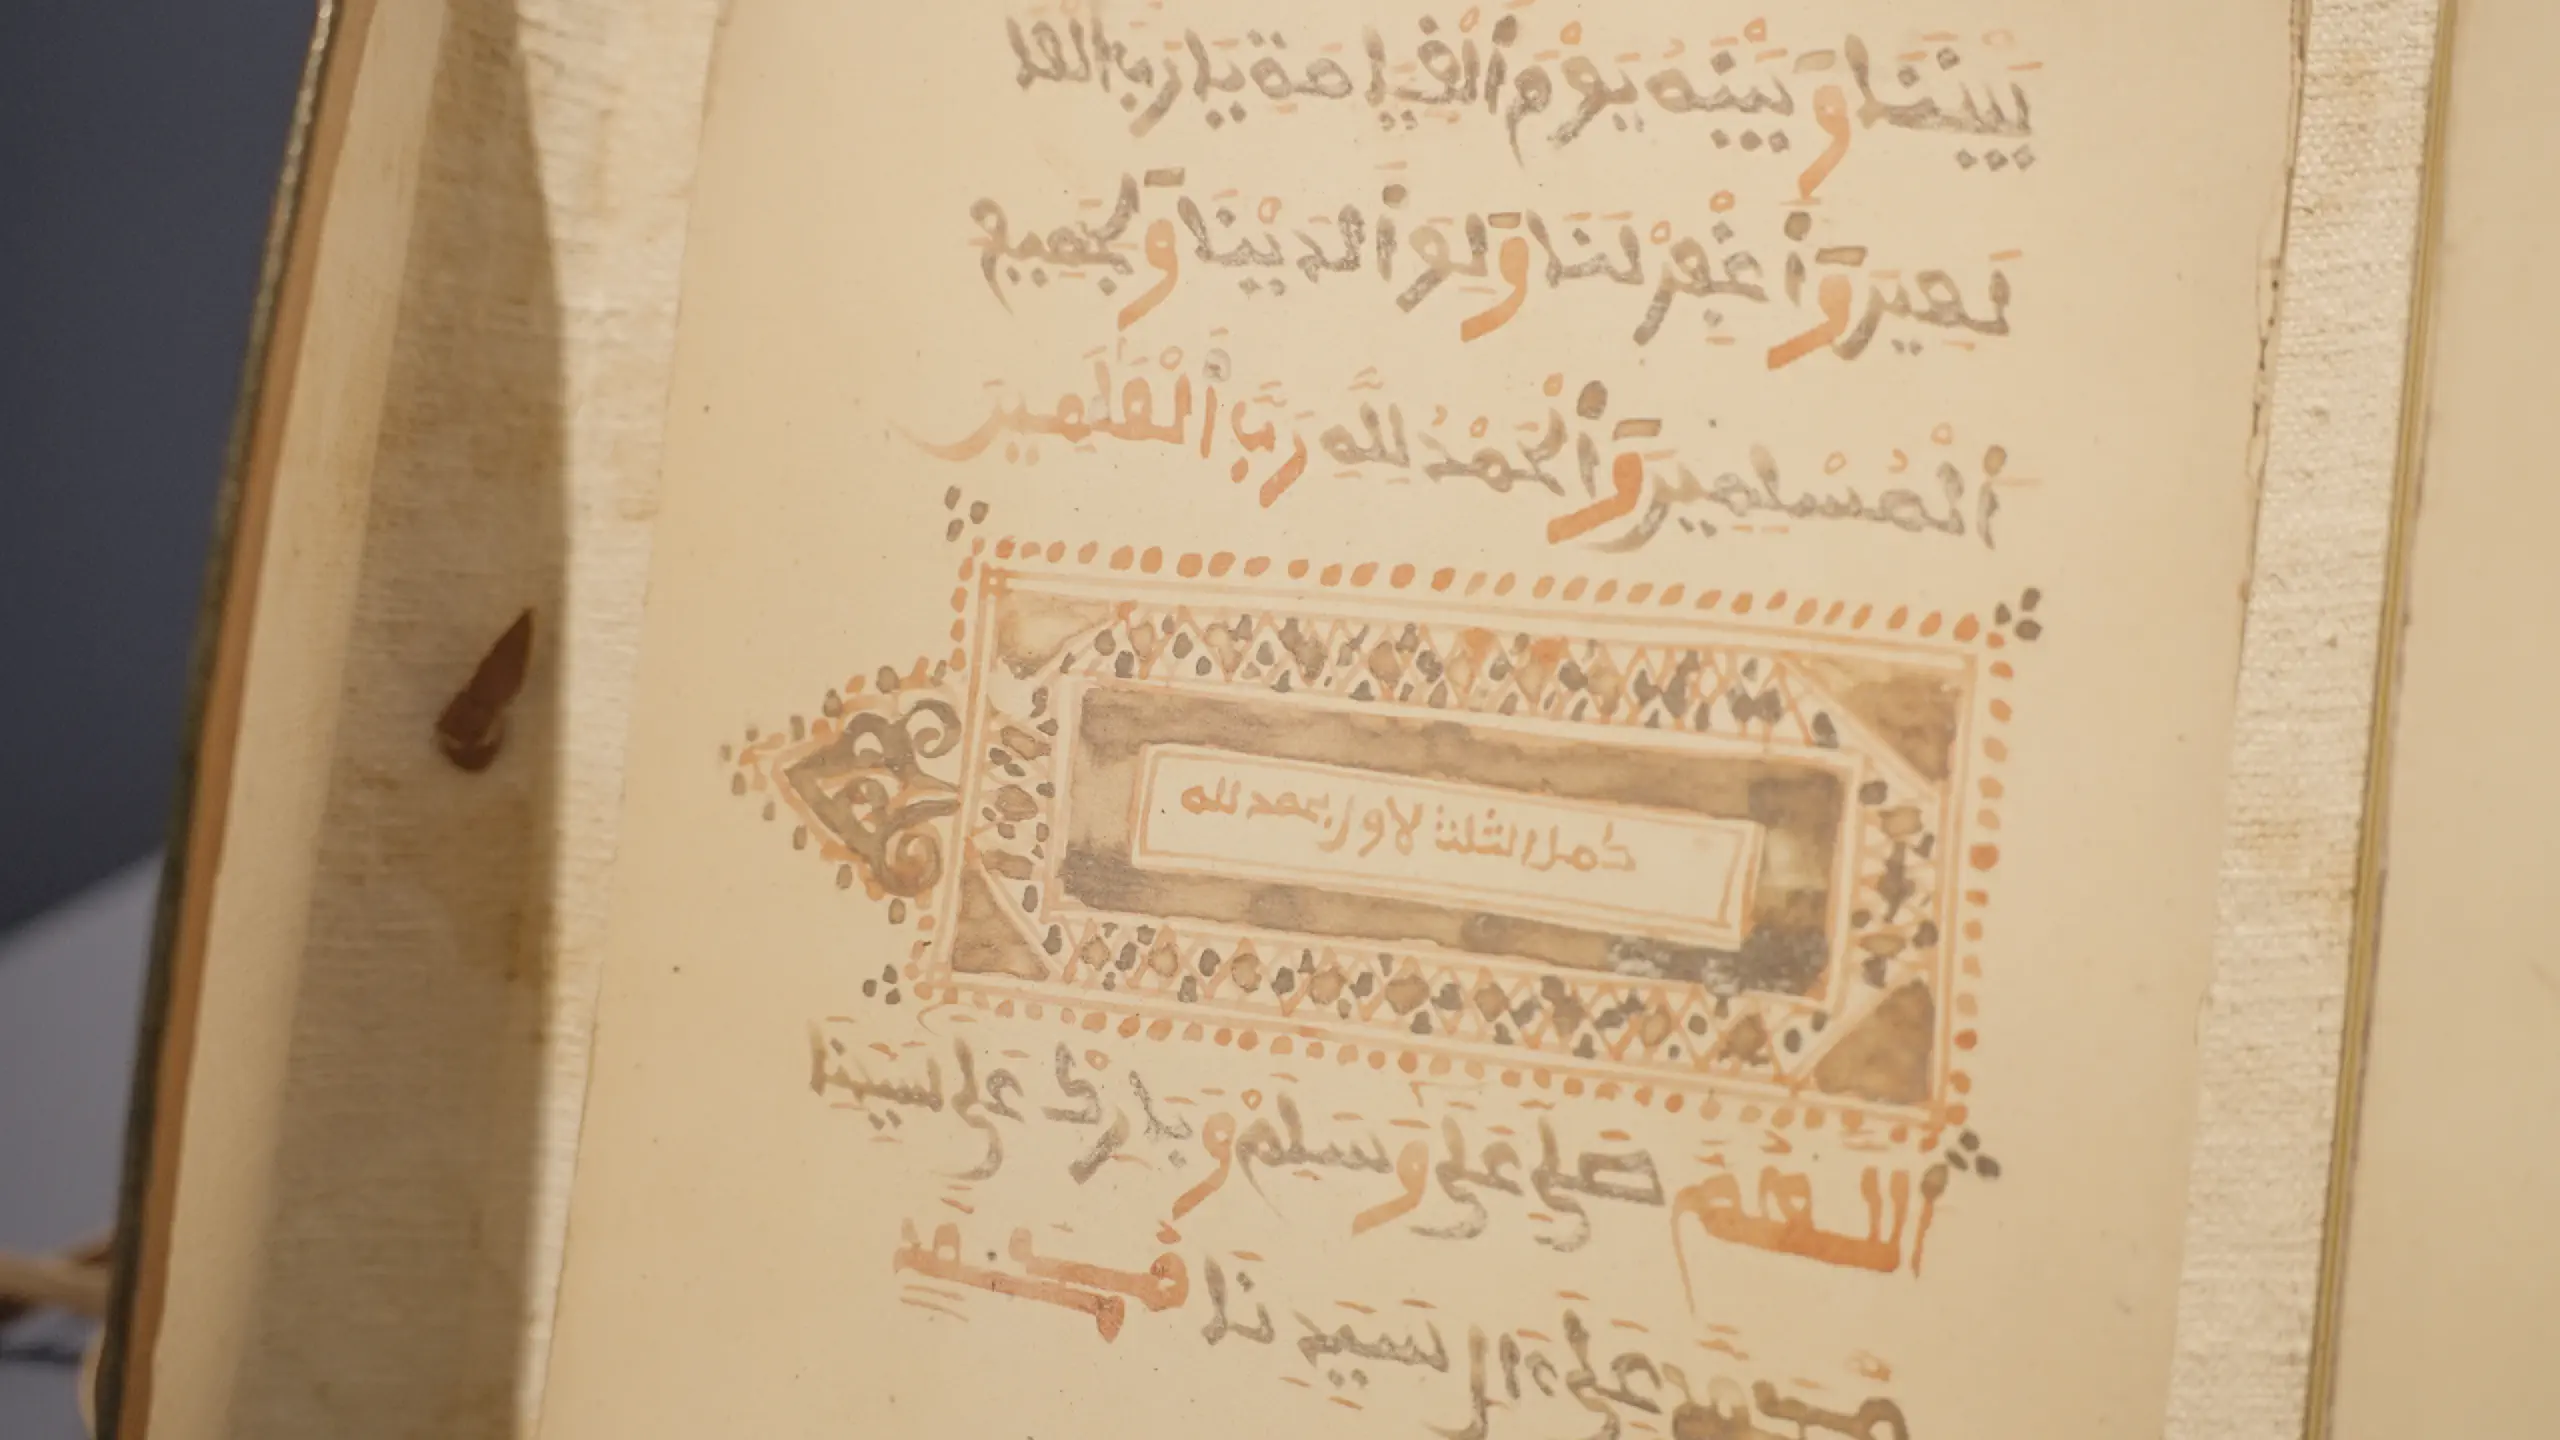 بَيْنَنَا وَبَيْنَهُ يَوْمَ الْقِيَامَةِ يَا رَبَّ الْعَا
لَمِينَ وَاغْفِرْ لَنَا وَلِوَالِدَيْنَا وَلِجَمِيعِ
الْمُسْلِمِينَ وَالْحَمْدُ لِلَّهِ رَبِّ الْعَلَمِينَ
كمل الثلث الاول بحمد لله
اللَّهُمَّ صَلِّ عَلَى وَسَلِّمْ وَبَارِكْ عَلَى سَيِّدِنَا
مُحَمَّدٍ وَعَلَى ءَالِ سَيِّدِنَا مُحَمَّدٍ